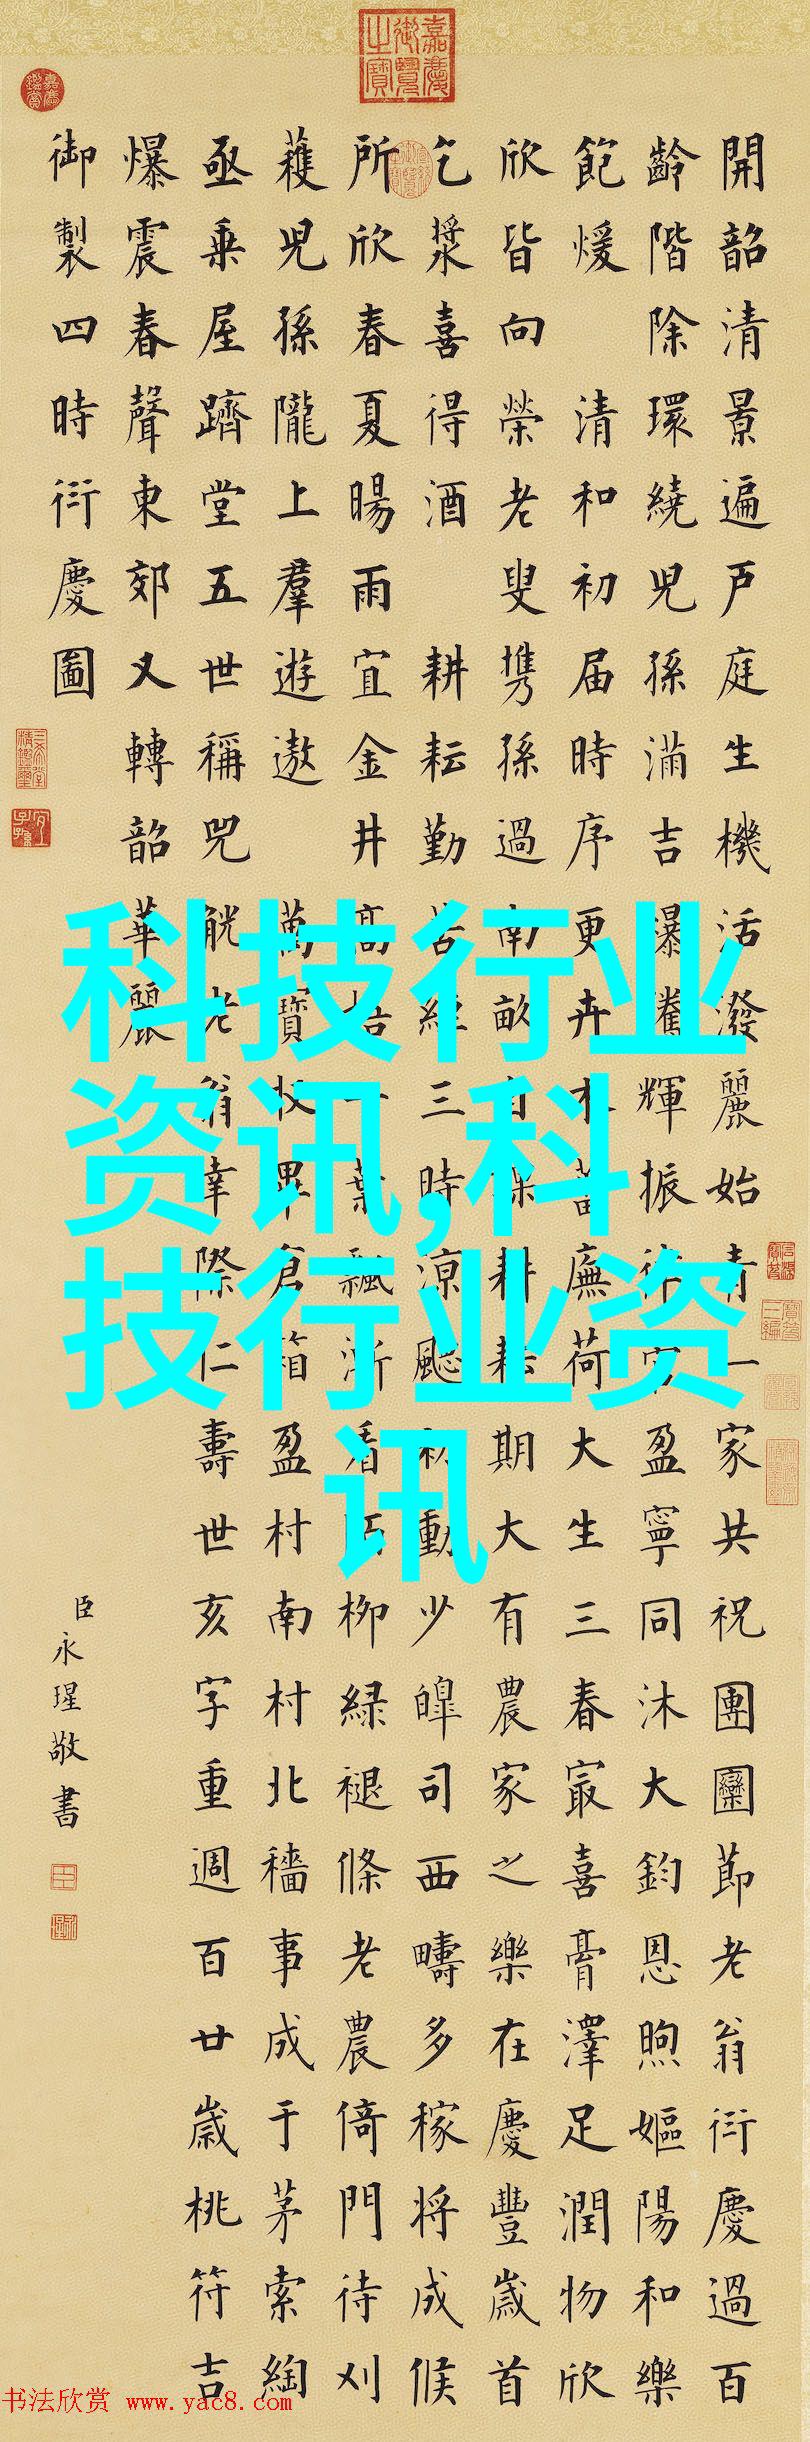 嘉慶御覽之寶
嘉慶鑑賞
開韶清景遍戸庭生機活潑麗始青一家共祝團圞節老翁衍慶過百
齡階除環繞兒孫滿吉輝振盈寧同沐大鈞恩煦嫗陽和樂
飽煖清和初届時序更卉木蕃廡荷大生三春冣喜膏澤足潤物欣
欣皆向榮老叟携孫過南畝耕耘期大有農家之樂在慶豐歲首
乞漿喜得酒耕耘勤苦經三時涼颸初動少皥司西疇多稼将成候
所欣春夏暘雨宜金井高梧一葉飄漸看柳緑褪條老農倚門待刈
穫兒孫隴上羣遊遨萬寶收畢倉箱盈村南村北穡事成于茅索綯
亟乗屋躋堂五世稱兕觥老翁幸際仁壽世亥字重週百廿歳桃符吉
爆震春聲東郊又轉韶華麗
御製四時衍慶圖
臣永瑆敬書
三希堂精鑑璽
宜子孫
科技行业
资讯,科
技行业资
讯
书法欣赏 www.yac8.com